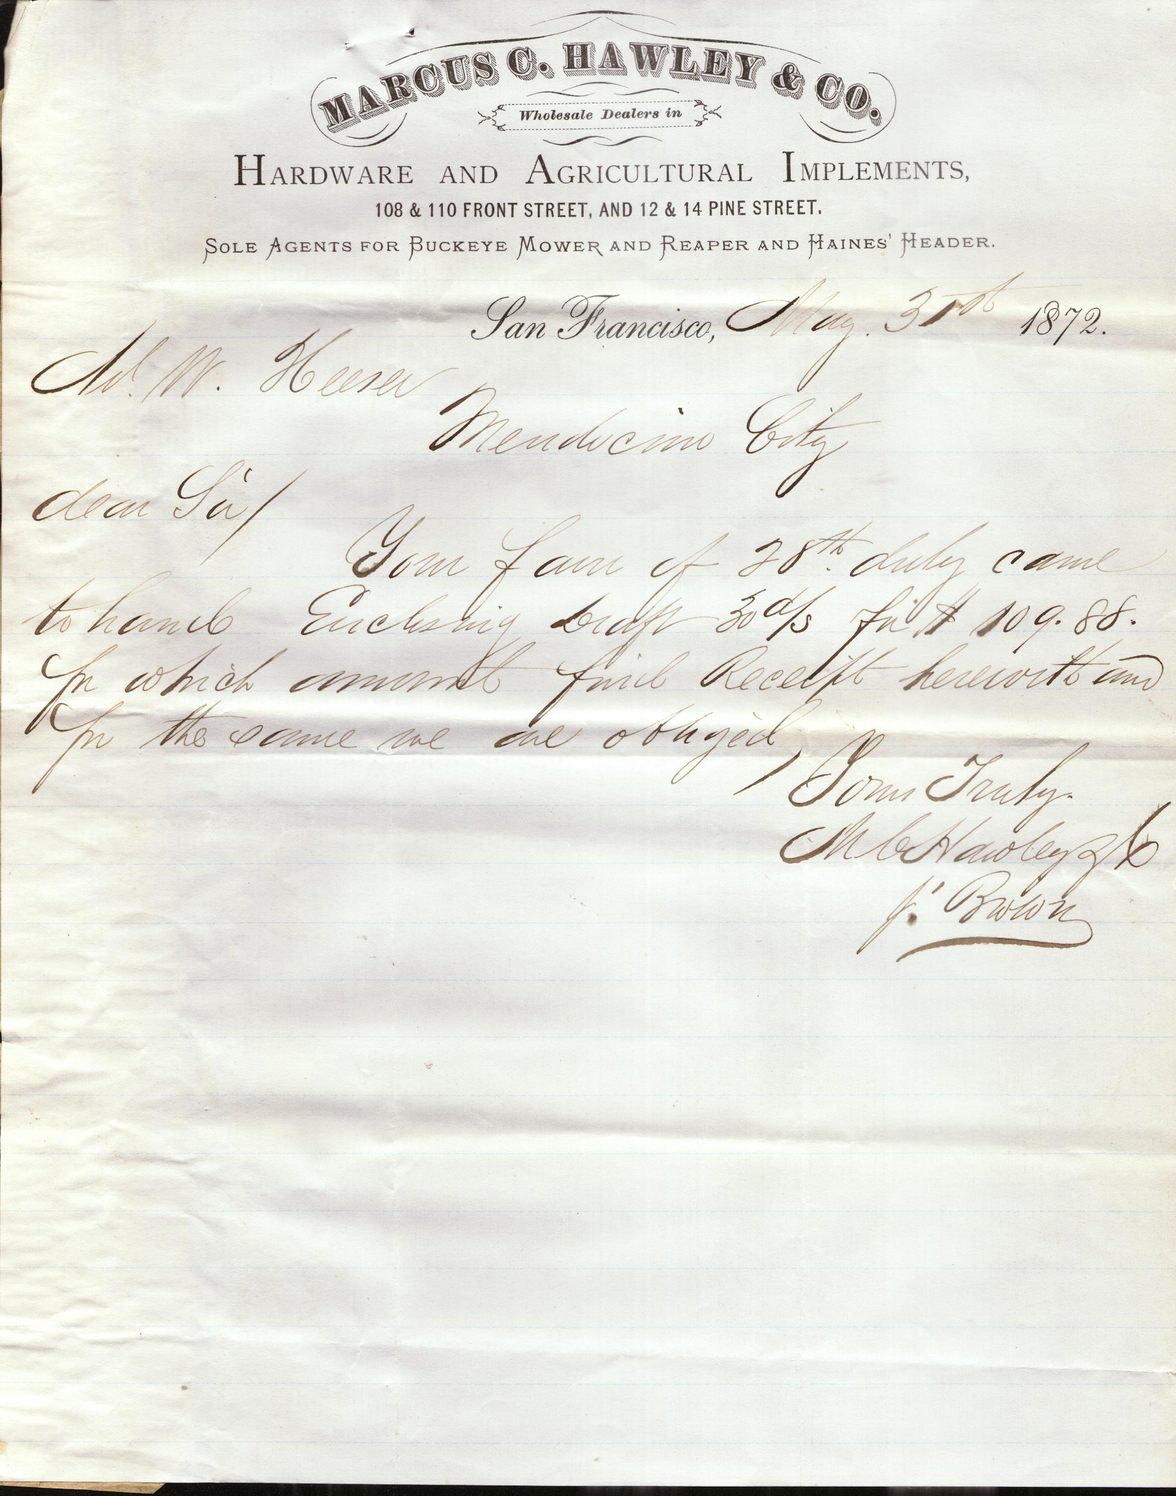 MARCUS C. HAWLEY & CO.
Wholesale Dealers in
HARDWARE AND AGRICULTURAL IMPLEMENTS,
108 & 110 FRONT STREET, AND 12 & 14 PINE STREET.
SOLE AGENTS FOR BUCKEYE MOWER AND REAPER AND HAINES' HEADER.
San Francisco, May. 31st 1872.
W. Heeser
Mendocino City
dear Sir/
Your favr of 28th. duly came
to hand Enclosing draft 30 d/s for $109.88.
for which amount find Receipt herewith and
for the same we are obliged,
Yours Truly.
M C Hawley & Co
p. Brown